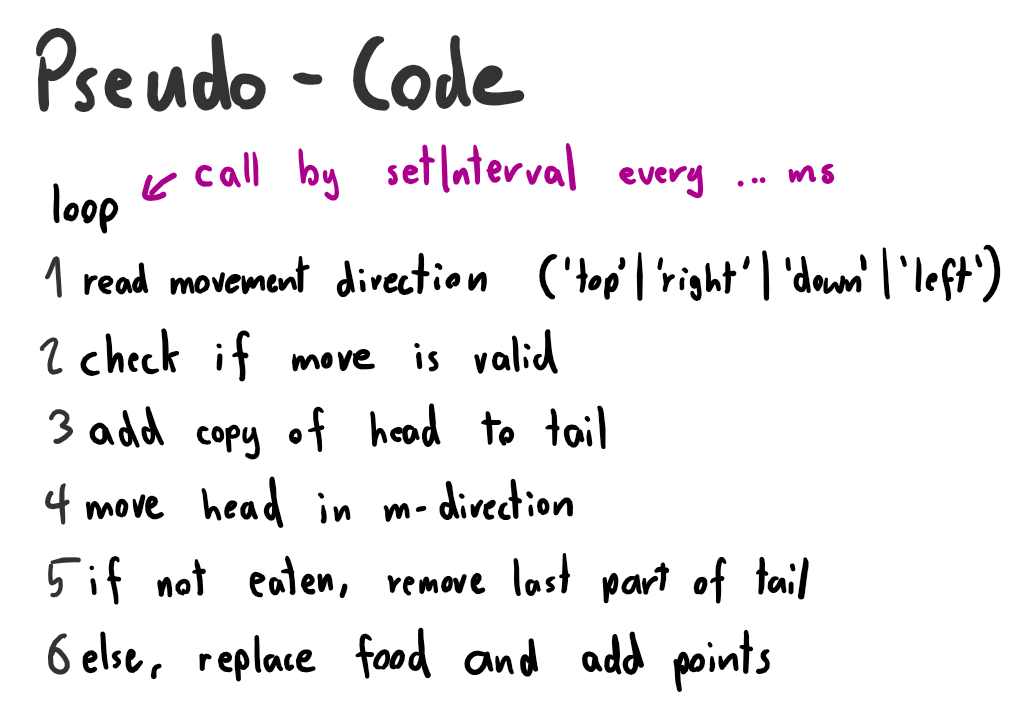 Pseudo - Code
call by setInterval every ... ms
loop
1 read movement direction ('top'|'right'|'down'|'left')
2 check if move is valid
3 add copy of head to tail
4 move head in m-direction
5 if not eaten, remove last part of tail
6 else, replace food and add points